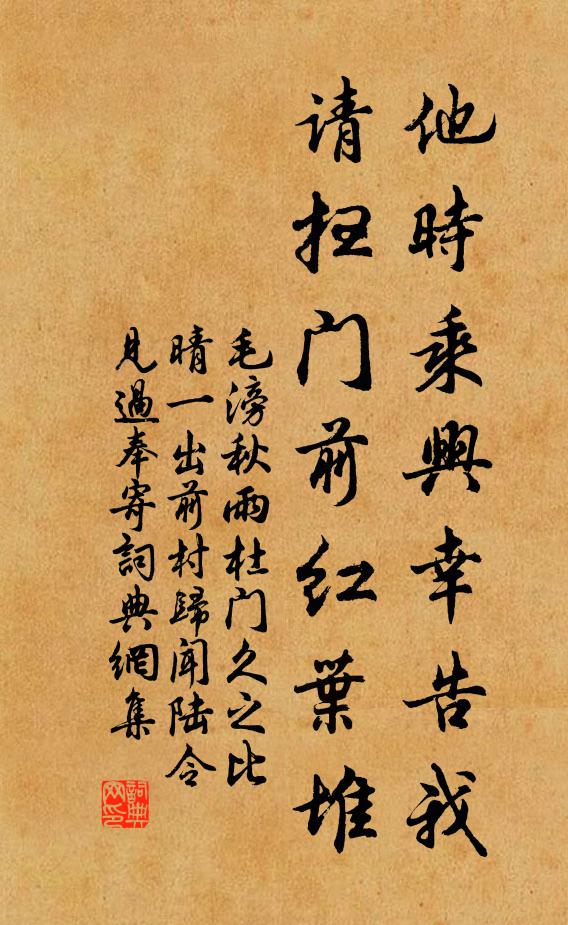 他時乘興幸告我
请扫门前红葉堆
毛滂秋雨杜门久之比
晴一出前村歸闻陆令
見過奉寄詞典網集
詞典
网印